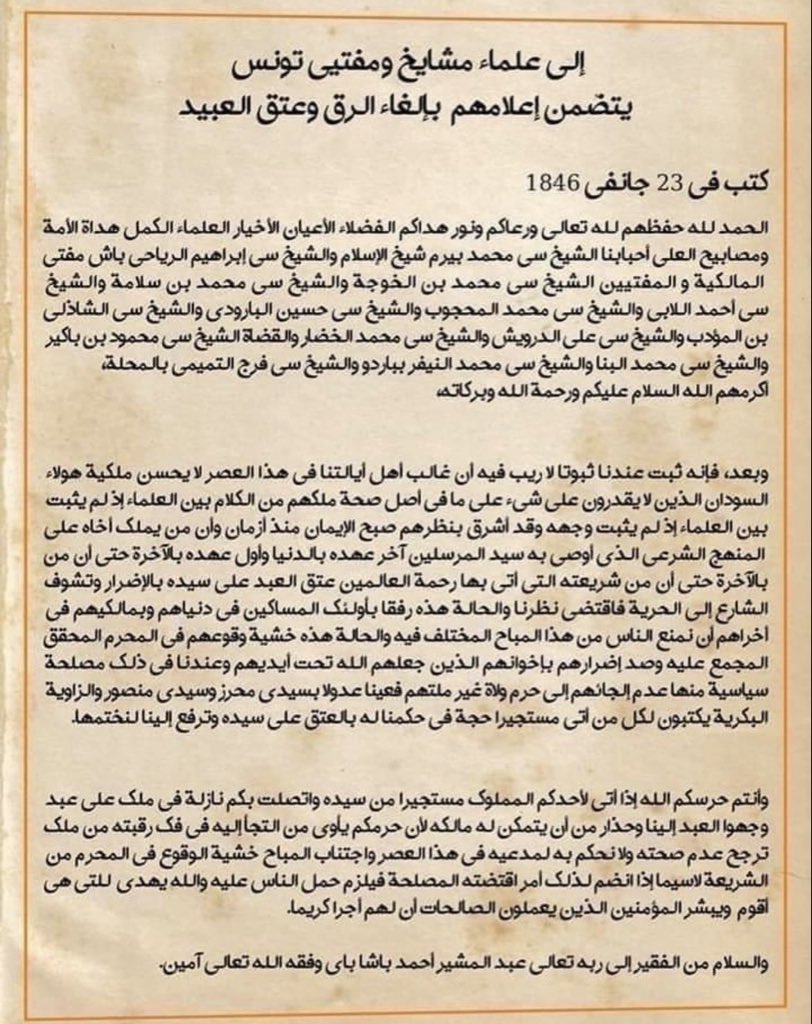 إلى علماء مشايخ ومفتيي تونس
يتضمن إعلامهم بإلغاء الرق وعتق العبيد
كتب في 23 جانفي 1846
الحمد لله حفظهم لله تعالى ورعاكم ونور هداكم الفضلاء الأعيان الأخيار العلماء الكمل هداة الأمة
ومصابيح العلى أحبابنا الشيخ سي محمد بيرم شيخ الإسلام والشيخ سي إبراهيم الرياحي باش مفتي
المالكية و المفتيين الشيخ سي محمد بن الخوجة والشيخ سي محمد بن سلامة والشيخ
سي أحمد اللابي والشيخ سي محمد المحجوب والشيخ سي حسين البارودي والشيخ سي الشاذلي
بن المؤدب والشيخ سي علي الدرويش والشيخ سي محمد الخضار والقضاة الشيخ سي محمود بن باكير
والشيخ سي محمد البنا والشيخ سي محمد النيفر بباردو والشيخ سي فرج التميمي بالمحلة،
أكرمهم الله السلام عليكم ورحمة الله وبركاته،
وبعد، فإنه ثبت عندنا ثبوتا لا ريب فيه أن غالب أهل أيالتنا في هذا العصر لا يحسن ملكية هولاء
السودان الذين لا يقدرون على شيء على ما في أصل صحة ملكهم من الكلام بين العلماء إذ لم يثبت
بين العلماء إذ لم يثبت وجهه وقد أشرق بنظرهم صبح الإيمان منذ أزمان وأن من يملك أخاه على
المنهج الشرعي الذي أوصى به سيد المرسلين آخر عهده بالدنيا وأول عهده بالآخرة حتى أن من
بالآخرة حتى أن من شريعته التي أتى بها رحمة العالمين عتق العبد على سيده بالإضرار وتشوف
الشارع إلى الحرية فاقتضى نظرنا والحالة هذه رفقا بأولئك المساكين في دنياهم وبمالكيهم في
أخراهم أن نمنع الناس من هذا المباح المختلف فيه والحالة هذه خشية وقوعهم في المحرم المحقق
المجمع عليه وصد إضرارهم بإخوانهم الذين جعلهم الله تحت أيديهم وعندنا في ذلك مصلحة
سياسية منها عدم إلجائهم إلى حرم ولاة غير ملتهم فعينا عدولا بسيدي محرز وسيدي منصور والزاوية
البكرية يكتبون لكل من أتى مستجيرا حجة في حكمنا له بالعتق على سيده وترفع إلينا لنختمها.
وأنتم حرسكم الله إذا أتى لأحدكم المملوك مستجيرا من سيده واتصلت بكم نازلة في ملك على عبد
وجهوا العبد إلينا وحذار من أن يتمكن له مالكه لأن حرمكم يأوي من التجأ إليه في فك رقبته من ملك
ترجح عدم صحته ولا نحكم به لمدعيه في هذا العصر واجتناب المباح خشية الوقوع في المحرم من
الشريعة لاسيما إذا انضم لذلك أمر اقتضته المصلحة فيلزم حمل الناس عليه والله يهدي للتي هي
أقوم ويبشر المؤمنين الذين يعملون الصالحات أن لهم أجرا كريما.
والسلام من الفقير إلى ربه تعالى عبد المشير أحمد باشا باي وفقه الله تعالى آمين.